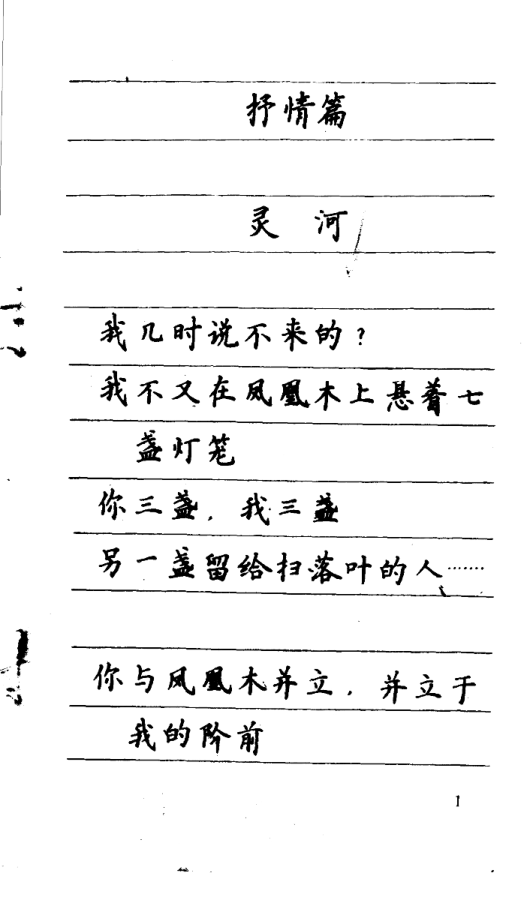 抒情篇
灵 河
我几时说不来的？
我不又在凤凰木上悬着七
盏灯笼
你三盏，我三盏
另一盏留给扫落叶的人……
你与凤凰木并立，并立于
我的阶前
1